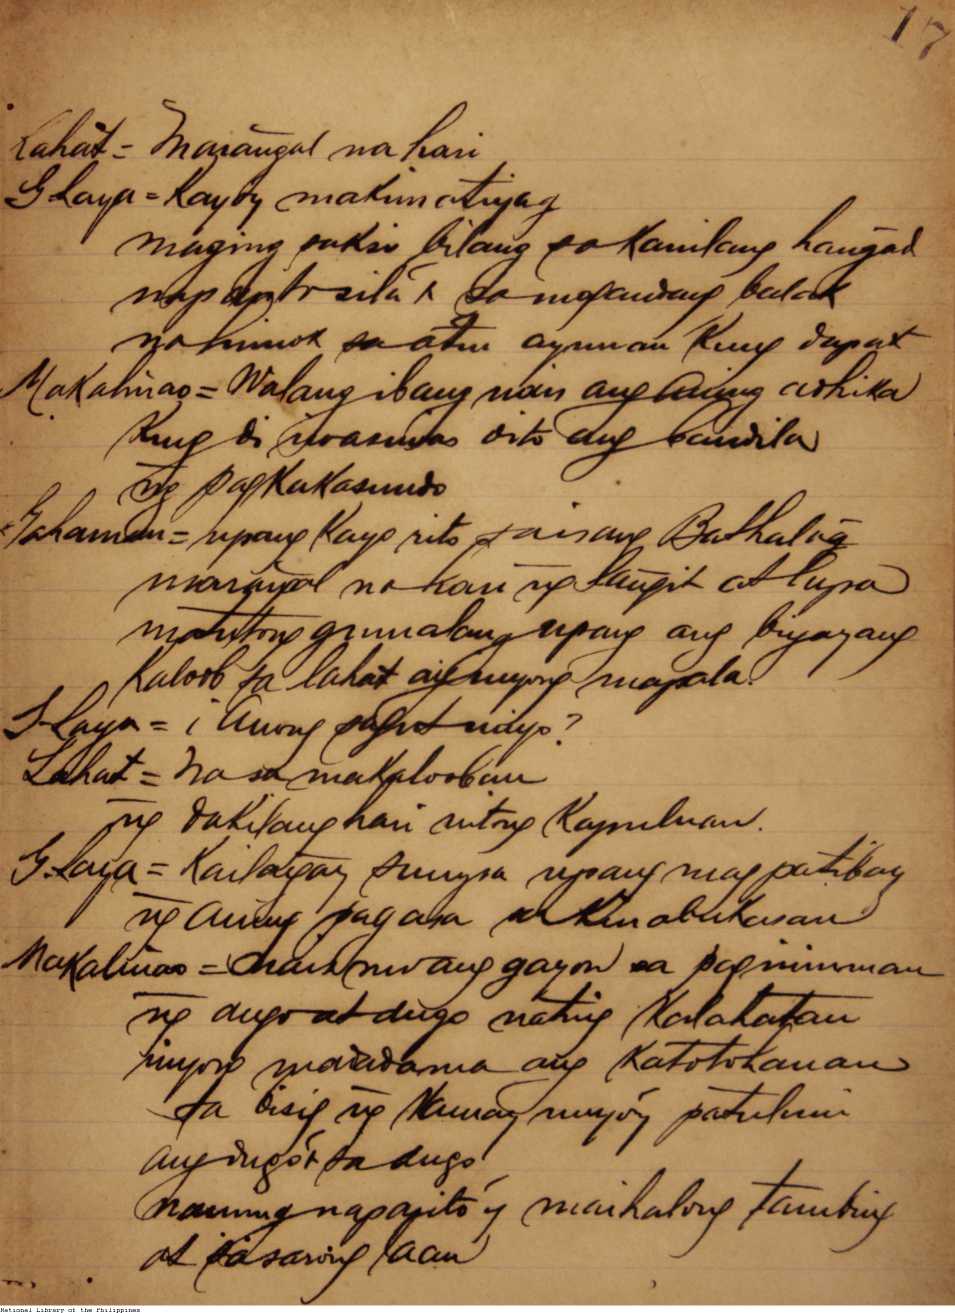 17
Lahát = Marãngal na hari
G Laya = Kayó'y
maging saksi bilang sa kanilang hangãd
silá't sa balak
na himok sa atin ayunan Kung dapat
Makalinao = Walang ibang nais ang aming adhika
Kung di iwasiwas dito ang bandila
ñg pagkakasundo
Gahaman = upang Kayo rito sa isang Bathalãg
marañgal na hari ñg lãngit at lupa
matutong gumalang upang ang biyayang
Kaloob sa lahat ay inyong mapala.
G Laya = ¿ Anong sagot ninyo?
Lahat = Na sa makalooban
ñg dakilang hari nitong Kapuluan.
G. Laya = Kailãgay sumpa upang magpatibay
ñg aming pagasa sa Kinabukasan
Makalinao = gayon sa paginuman
ñg dugo at dugo nating Kalahatan
inyong madadama ang Katotohanan
sa bisig ñg Kamay ninyo'y patuluin
ang dugo't sa dugo
naming nagapito'y maihalong tambing
at sa sarong
National Library of the Philippines